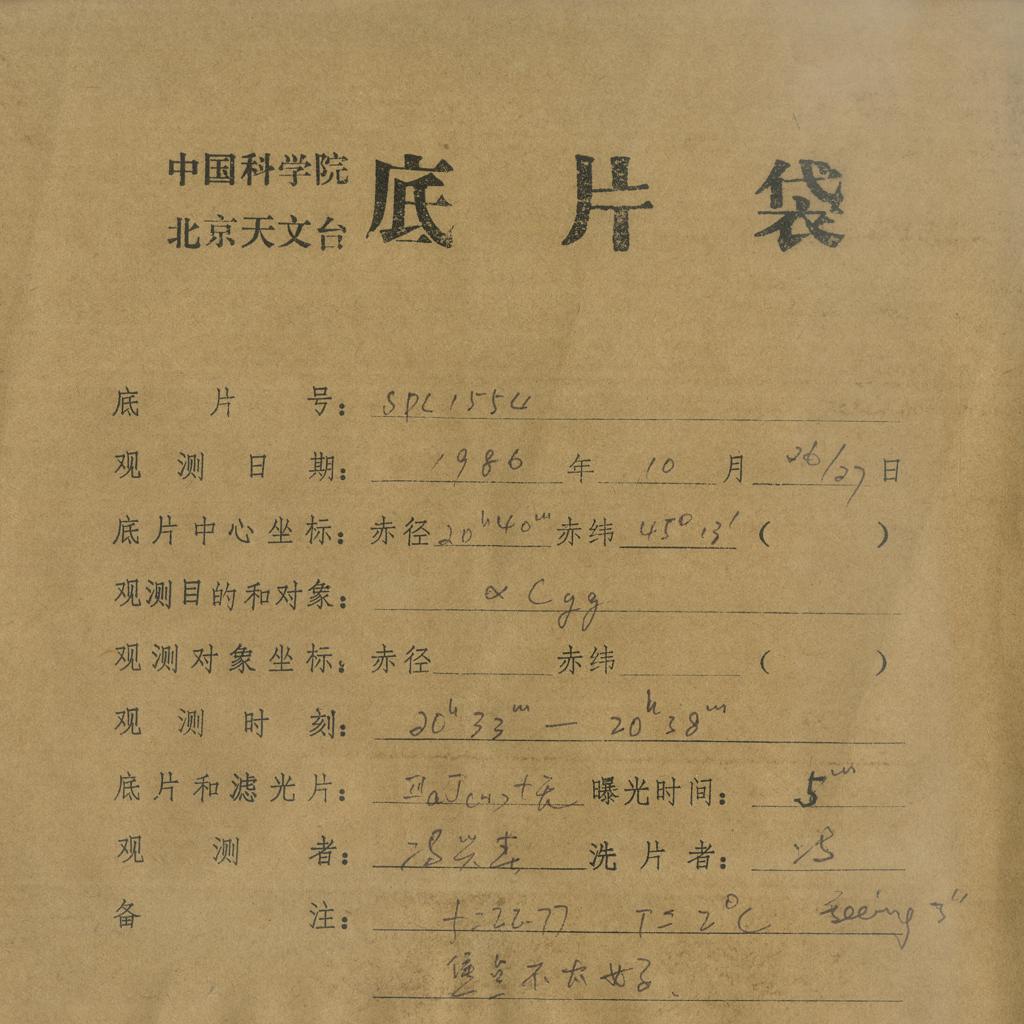 中国科学院
北京天文台 底片袋
底片号：SPL1554
观测日期：1986年10月26/27日
底片中心坐标：赤径20ʰ40ᵐ赤纬45°13′（ ）
观测目的和对象：α Cgg
观测对象坐标：赤径 赤纬 （ ）
观测时刻：20ʰ33ᵐ — 20ʰ38ᵐ
底片和滤光片：ⅢaJ(H)+无 曝光时间：5ᵐ
观测者：冯兴春 洗片者：冯
备注：f=22.77 T=2°C Seeing 3″
不太好